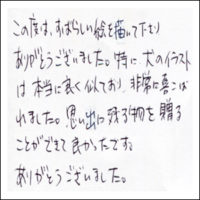 この度は、すばらしい絵を描いて下さり
ありがとうございました。特に犬のイラスト
は本当に良く似ており、非常に喜こば
れました。思い出に残る物を贈る
ことができて良かったです。
ありがとうございました。